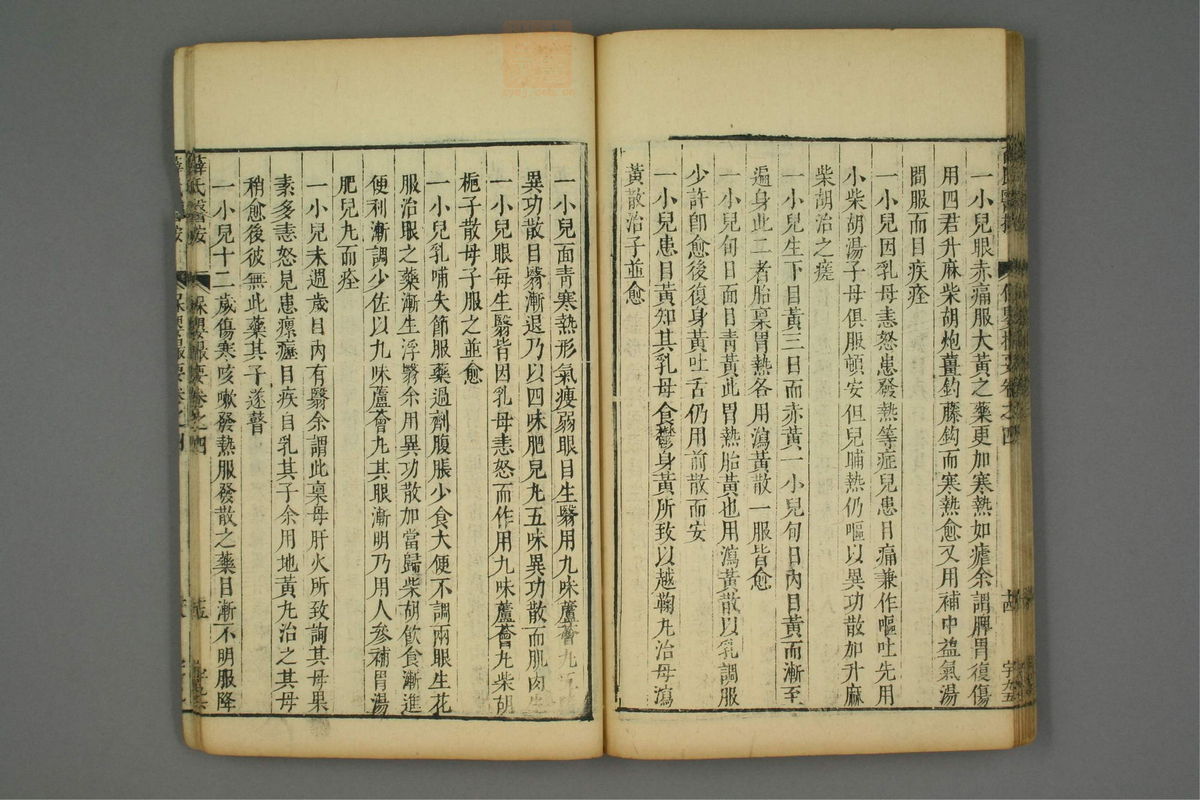 一小兒眼赤痛服大黃之藥更加寒熱如瘧余謂脾胃復傷
用四君升麻柴胡炮薑鈎藤鈎而寒熱愈又用補中益氣湯
間服而目疾痊
一小兒因乳母恚怒患發熱等症兒患目痛兼作嘔吐先用
小柴胡湯子母俱服頓安但兒晡熱仍嘔以異功散加升麻
柴胡治之瘥
一小兒生下目黃三日而赤黃一小兒旬日內目黃而漸至
遍身此二者胎稟胃熱各用瀉黃散一服皆愈
一小兒旬日面目青黃此胃熱胎黃也用瀉黃散以乳調服
少許卽愈後復身黃吐舌仍用前散而安
一小兒患目黃知其乳母食鬱身黃所致以越鞠丸治母瀉
黃散治子並愈
一小兒面青寒熱形氣瘦弱眼目生翳用九味蘆薈丸五
異功散目翳漸退乃以四味肥兒丸五味異功散而肌肉生
一小兒眼每生翳皆因乳母恚怒而作用九味蘆薈丸柴胡
梔子散母子服之並愈
一小兒乳哺失節服藥過劑腹脹少食大便不調兩眼生花
服治眼之藥漸生浮翳余用異功散加當歸柴胡飲食漸進
便利漸調少佐以九味蘆薈丸其眼漸明乃用人參補胃湯
肥兒丸而痊
一小兒未過歲目內有翳余謂此稟母肝火所致詢其母果
素多恚怒見患瘰癧目疾自乳其子余用地黃丸治之其母
稍愈後彼無此藥其子遂瞽
一小兒十二歲傷寒咳嗽發熱服發散之藥目漸不明服降
薛氏醫按 保嬰撮要卷之四